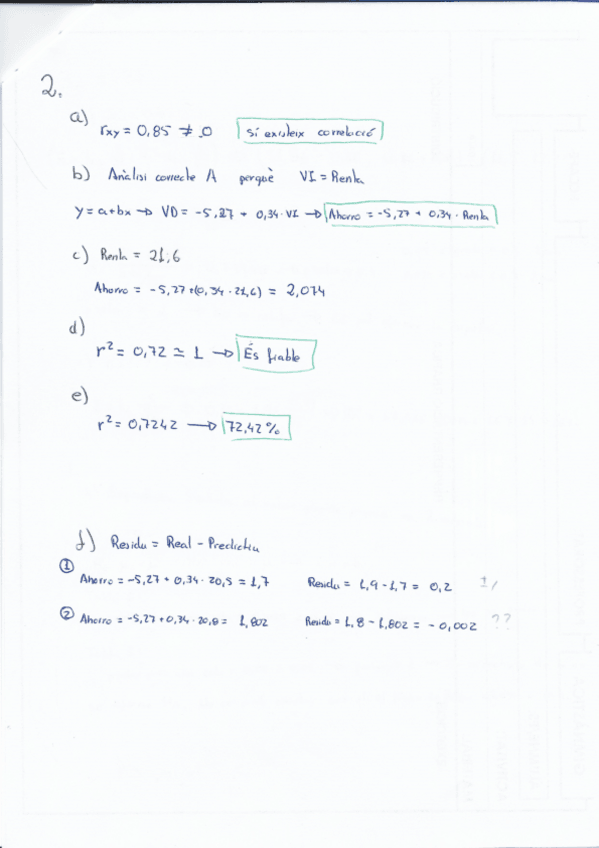 2.
a)
rxy = 0,85 ≠ 0 Sí existeix correlació
b) Anàlisi correcte A perquè VI = Renta
y = a+bx → VD = -5,27 + 0,34·VI → Ahorro = -5,27 + 0,34 · Renta
c) Renta = 21,6
Ahorro = -5,27 +(0,34 · 21,6) = 2,074
d)
r² = 0,72 ≃ 1 → És fiable
e)
r² = 0,7242 → 72,42 %
f) Residu = Real - Predictiu
① Ahorro = -5,27 + 0,34 · 20,5 = 1,7 Residu = 1,9 - 1,7 = 0,2
② Ahorro = -5,27 + 0,34 · 20,8 = 1,802 Residu = 1,8 - 1,802 = -0,002 ??